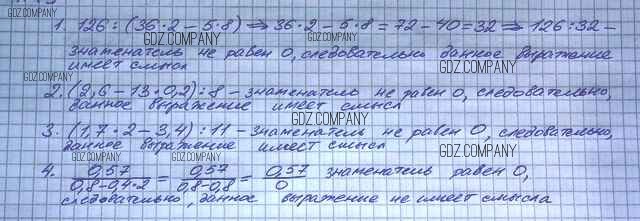 GDZ.COMPANY
1. 126 : (36·2 – 5·8) ⇒ 36·2 – 5·8 = 72 – 40 = 32 ⇒ 126 : 32 –
GDZ.COMPANY GDZ.COMPANY
знаменатель не равен 0, следовательно данное выражение
имеет смысл
GDZ.COMPANY
2. (2,6 – 13·0,2) : 8 – знаменатель не равен 0, следовательно,
данное выражение имеет смысл
GDZ.COMPANY
3. (1,7·2 – 3,4) : 11 – знаменатель не равен 0, следовательно,
данное выражение имеет смысл
GDZ.COMPANY GDZ.COMPANY GDZ.COMPANY
4. 0,57/(0,8–0,4·2) = 0,57/(0,8–0,8) = 0,57/0 знаменатель равен 0,
следовательно, данное выражение не имеет смысла